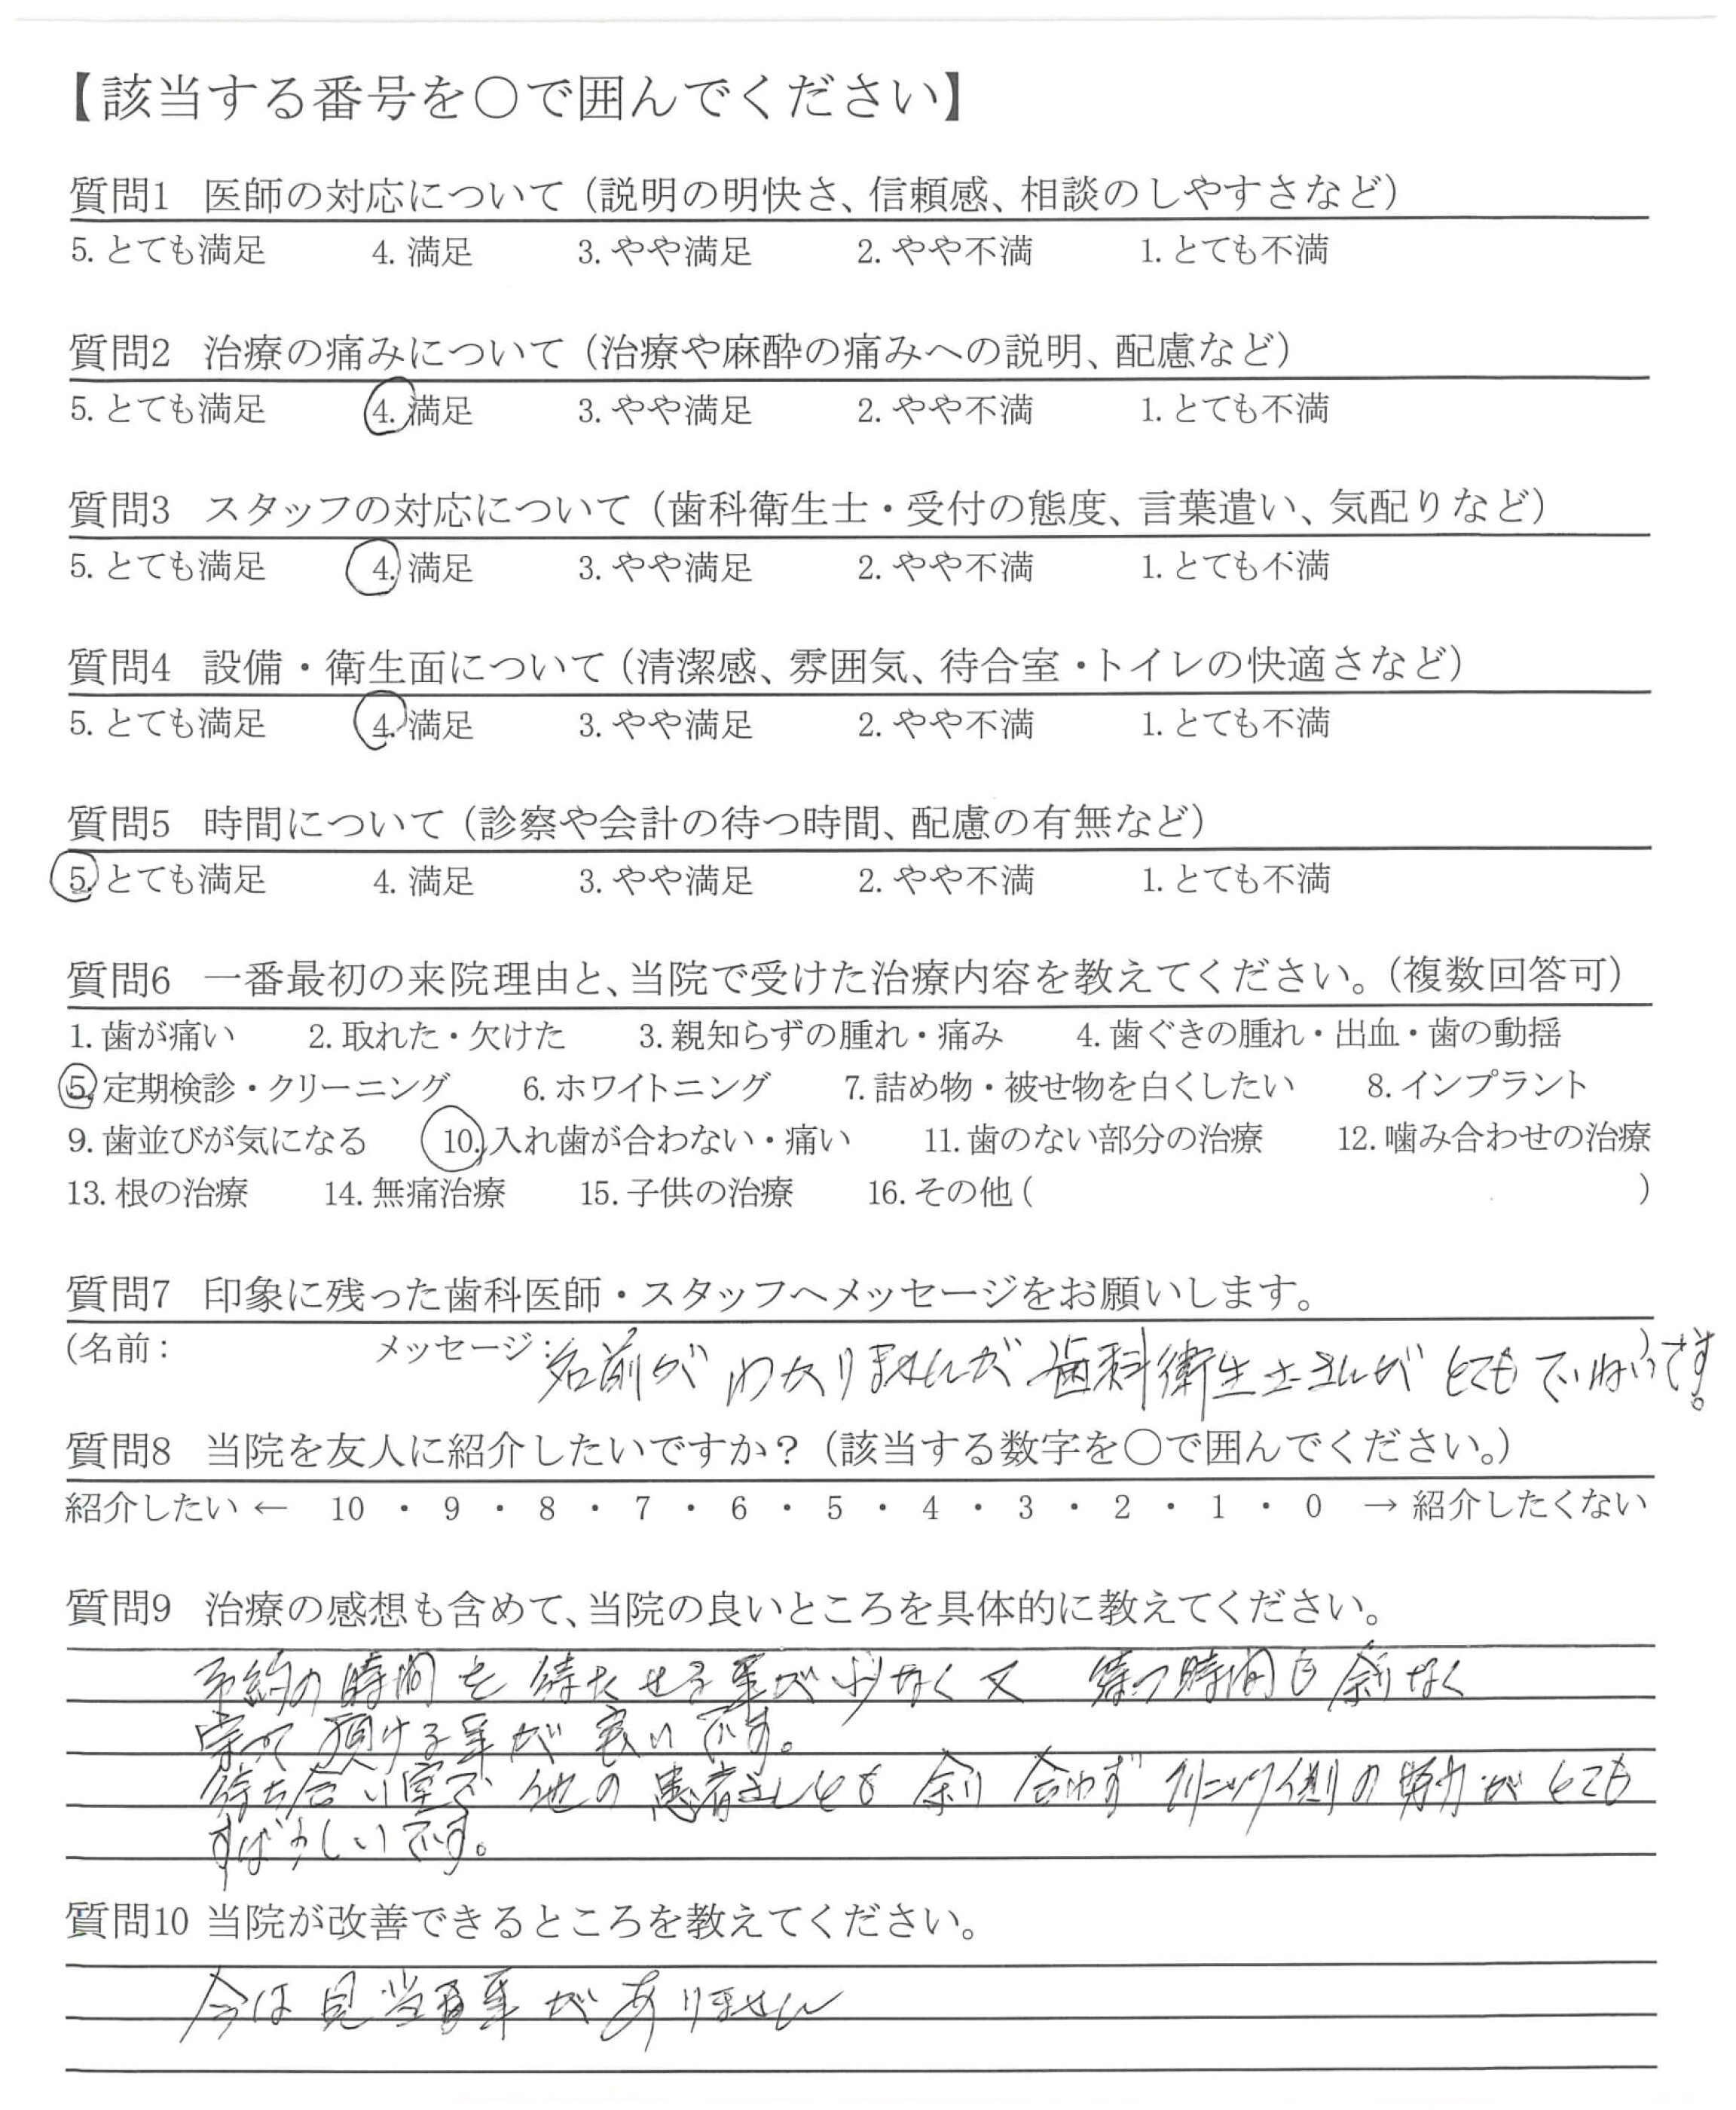 【該当する番号を○で囲んでください】
質問1 医師の対応について（説明の明快さ、信頼感、相談のしやすさなど）
5. とても満足 4. 満足 3. やや満足 2. やや不満 1. とても不満
質問2 治療の痛みについて（治療や麻酔の痛みへの説明、配慮など）
5. とても満足 4. 満足 3. やや満足 2. やや不満 1. とても不満
質問3 スタッフの対応について（歯科衛生士・受付の態度、言葉遣い、気配りなど）
5. とても満足 4. 満足 3. やや満足 2. やや不満 1. とても不満
質問4 設備・衛生面について（清潔感、雰囲気、待合室・トイレの快適さなど）
5. とても満足 4. 満足 3. やや満足 2. やや不満 1. とても不満
質問5 時間について（診察や会計の待つ時間、配慮の有無など）
5. とても満足 4. 満足 3. やや満足 2. やや不満 1. とても不満
質問6 一番最初の来院理由と、当院で受けた治療内容を教えてください。（複数回答可）
1. 歯が痛い 2. 取れた・欠けた 3. 親知らずの腫れ・痛み 4. 歯ぐきの腫れ・出血・歯の動揺
5. 定期検診・クリーニング 6. ホワイトニング 7. 詰め物・被せ物を白くしたい 8. インプラント
9. 歯並びが気になる 10. 入れ歯が合わない・痛い 11. 歯のない部分の治療 12. 噛み合わせの治療
13. 根の治療 14. 無痛治療 15. 子供の治療 16. その他（ ）
質問7 印象に残った歯科医師・スタッフへメッセージをお願いします。
（名前： メッセージ：名前がわかりませんが歯科衛生士さんがとてもていねいです。）
質問8 当院を友人に紹介したいですか？（該当する数字を○で囲んでください。）
紹介したい ← 10 ・ 9 ・ 8 ・ 7 ・ 6 ・ 5 ・ 4 ・ 3 ・ 2 ・ 1 ・ 0 → 紹介したくない
質問9 治療の感想も含めて、当院の良いところを具体的に教えてください。
予約の時間を待たせる事が少なく又 待つ時間も余りなく
頂ける事が良いです。
待ち合い室で他の患者さんとも余り会わずクリニック側の努力がとても
すばらしいです。
質問10 当院が改善できるところを教えてください。
今は見当る事がありません